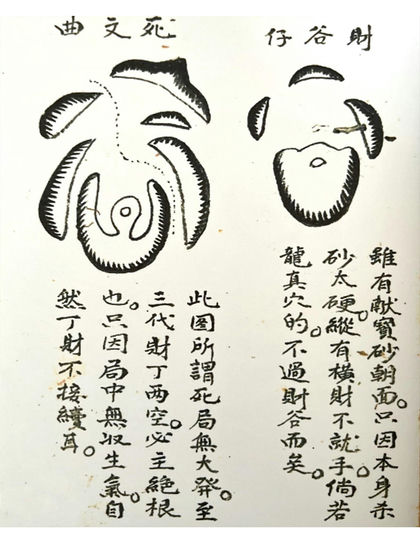 財谷仔
雖有獻寶砂朝面。只因本身杀
砂太硬。縱有橫財不就手。倘若
龍真穴的。不過財谷而矣。
死文曲
此圖所謂死局無大發。至
三代財丁兩空。必主絕根
也。只因局中無収生氣。自
然丁財不接續耳。